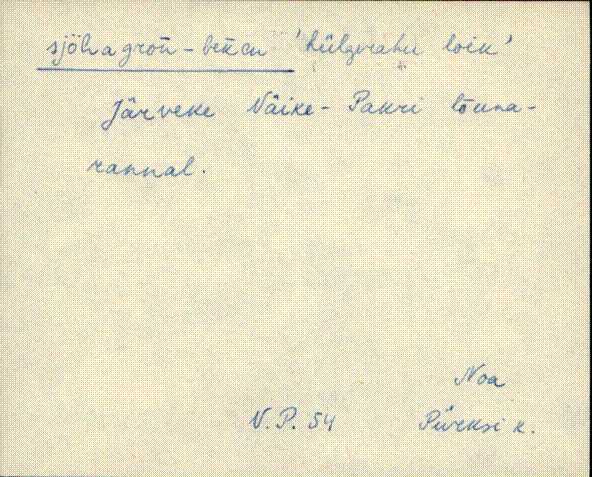 sjöhagron-bik̄en 'hülgerahu loik'
Järveke Väike-Pakri lõuna-
rannal.
Noa
V.P. 54 Pürksi k.